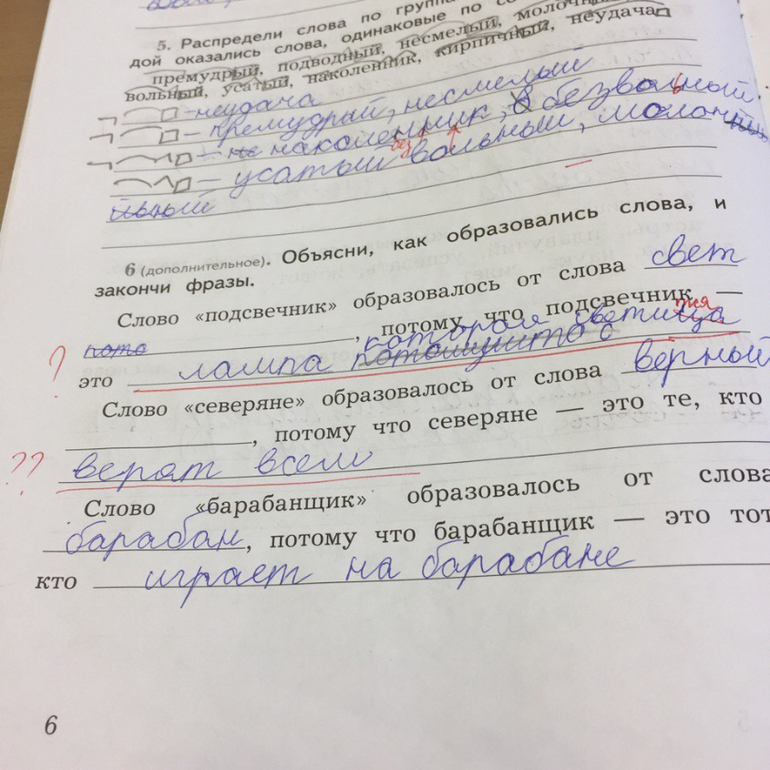 5. Распредели слова по групп
дой оказались слова, одинаковые по со
премудрый, подводный, несмелый, молочн
вольный, усатый, наколенник, кирпичный, неудача
– неудача
– премудрый, несмелый
– наколенник, безвольный
– усатый вольный, молочн
6 (дополнительное). Объясни, как образовались слова, и
закончи фразы.
Слово «подсвечник» образовалось от слова свет
, потому что подсвечник —
это лампа которая светица
Слово «северяне» образовалось от слова верный
, потому что северяне — это те, кто
?? верят всем
Слово «барабанщик» образовалось от слова
барабан, потому что барабанщик — это тот
кто играет на барабане
6